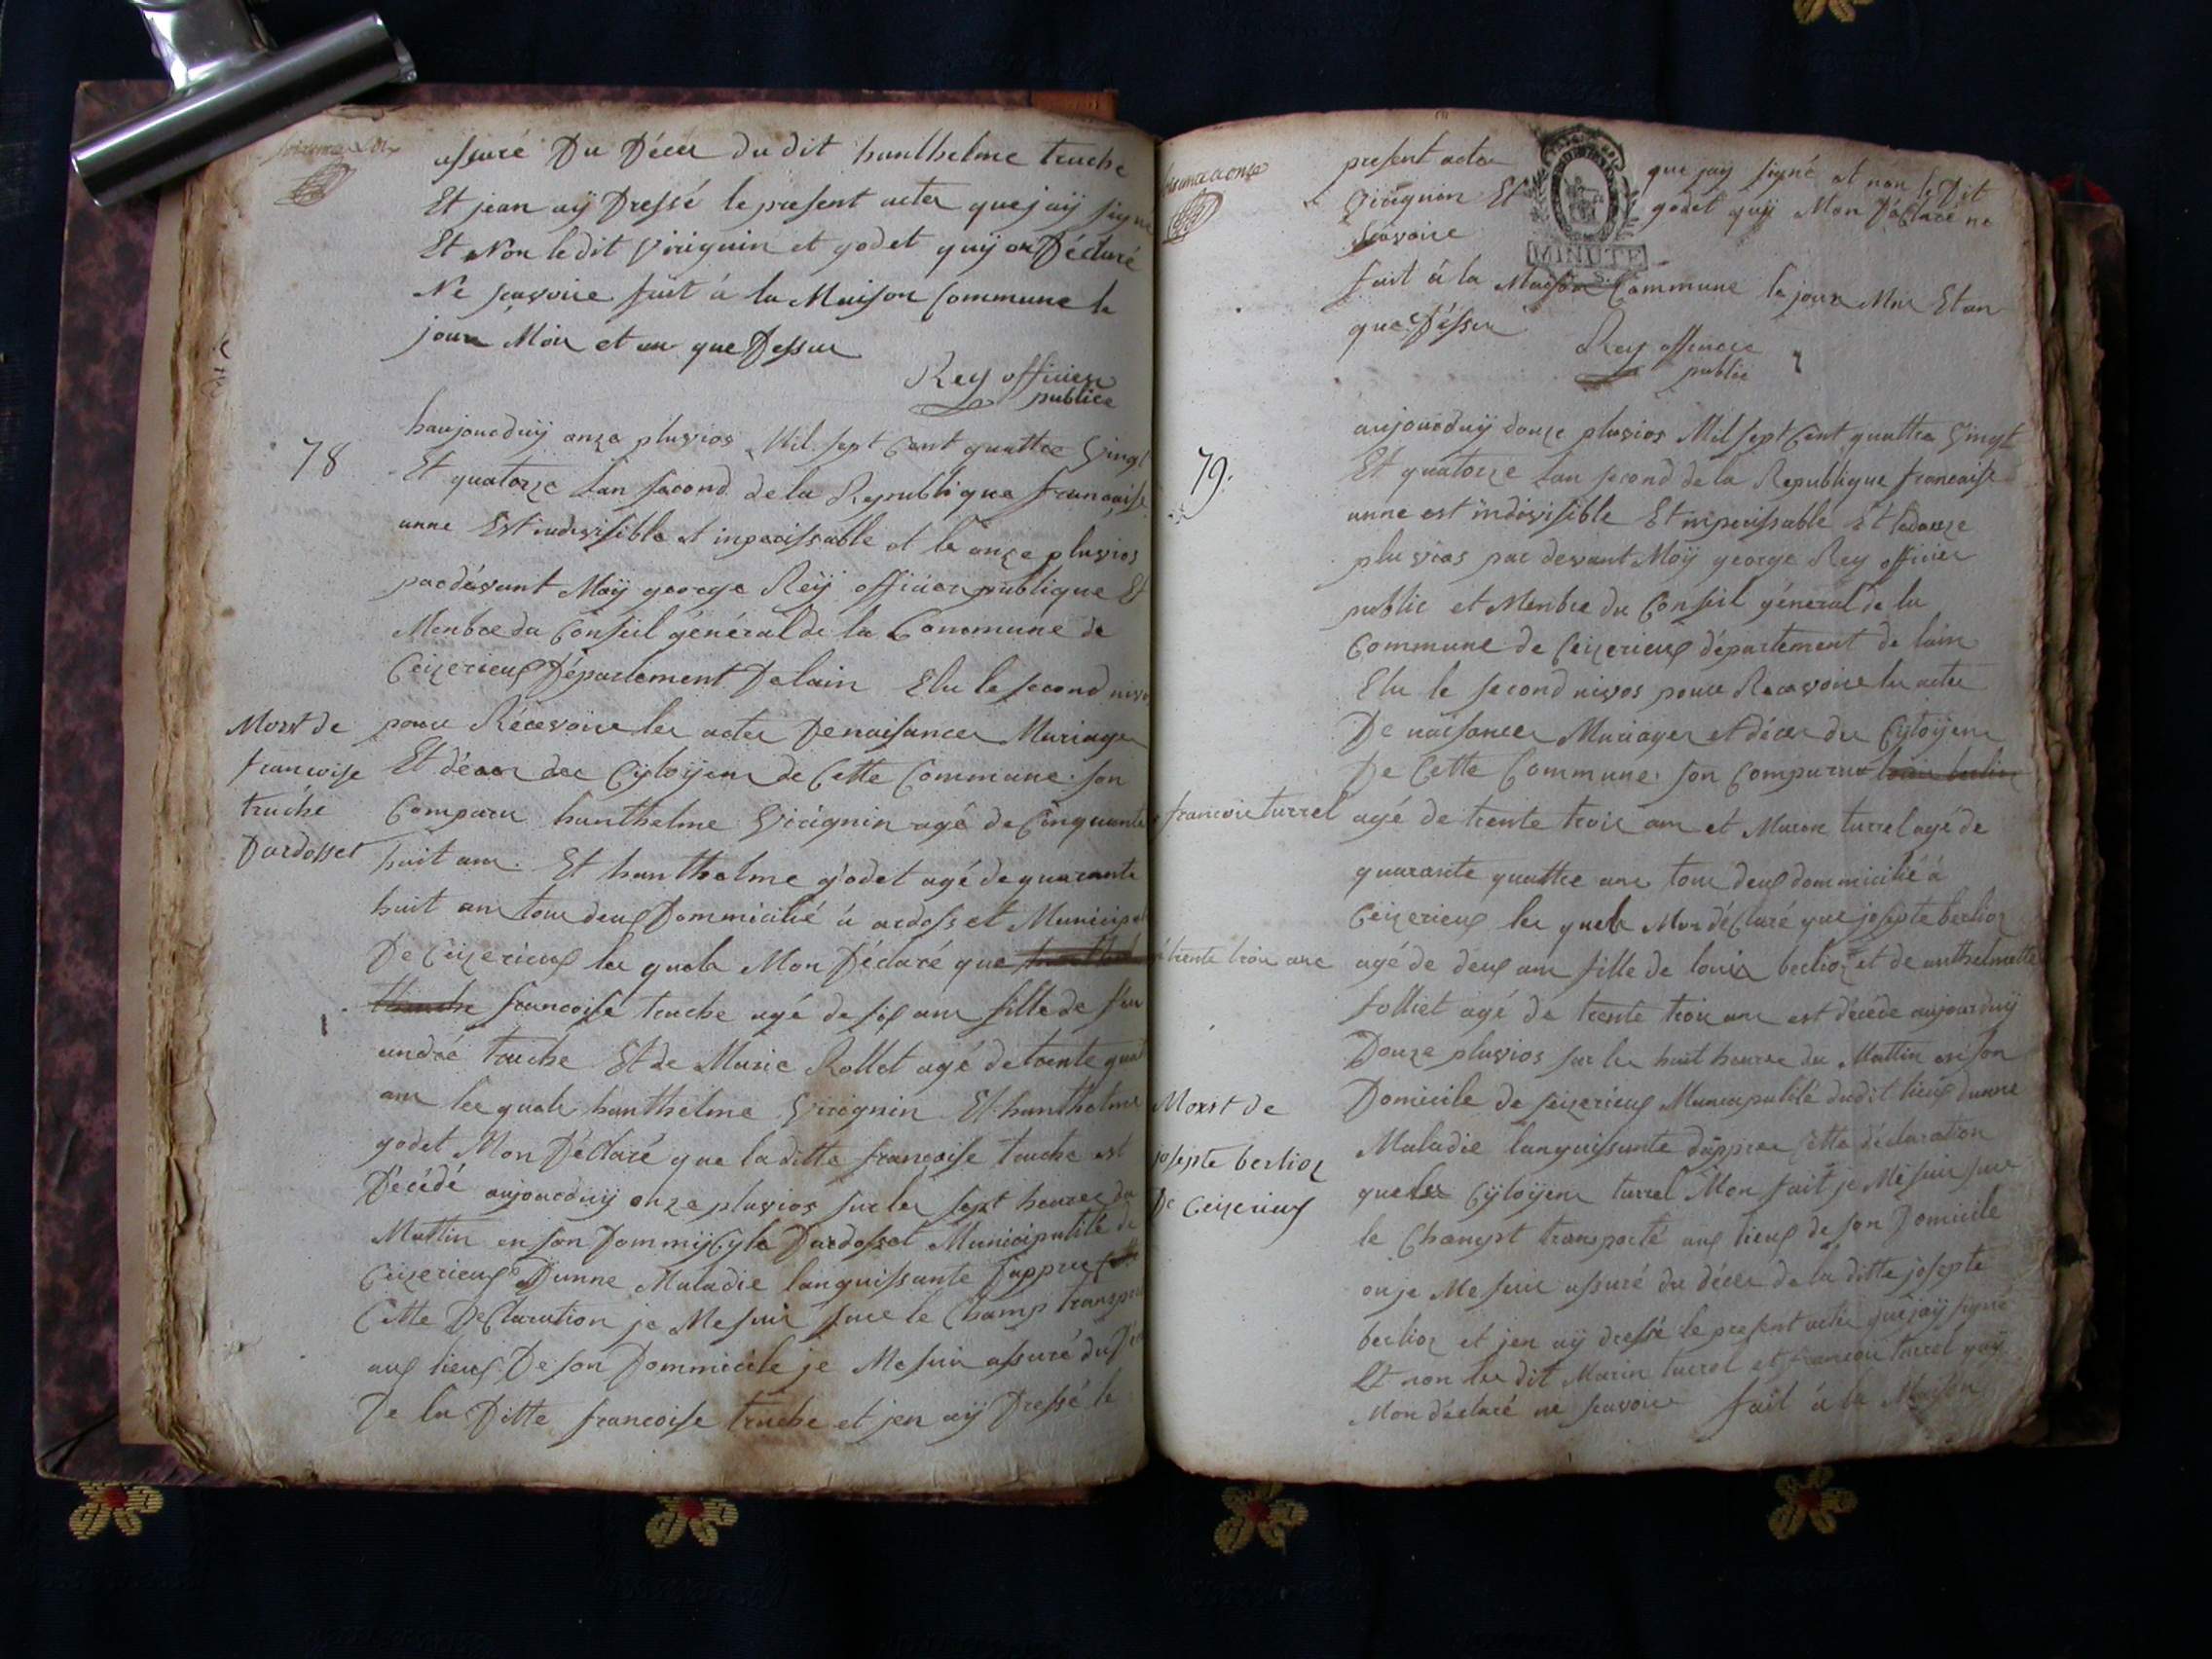 assuré Du Décès du dit hanthelme truche
Et jean aÿ Dressé le present acter que jaÿ signé
Et Non le dit Virignin et godet quÿ on Déclaré
Ne scavoire fait à la Maison Commune le
jour Mois et an que Dessus
Rey officier
publice
78
haujourduÿ onze plusios Mil sept Cent quattre Vingt
Et quatorze Lan second de la Republique francaise
unne Est indivisible et inperissable et le onze plusios
pardevant Moÿ george Reÿ officier publique Et
Menbre du Conseil général de la Commune de
Ceizerieux Département Delain Elu le second
pour Récevoire les actes Denaisances Mariages
Et décès des Cÿtoÿens de Cette Commune son
Mort de
francoise
truche
Dardosset
Comparu hanthelme Virignin agé de Cinquante
huit ans Et hanthelme godet agé de quarante
huit ans tous deux Dommicilié à ardosset
De Ceizerieux les quels Mon Déclaré que
francoise truche agé de six ans fille de feu
andré truche Et de Marie Rollet agé de trente
ans les quels hanthelme Virignin Et hanthelme
godet Mon Déclaré que la ditte francoise truche est
Décédé aujourduÿ onze plusios sur les sept heures du
Mattin en son Dommiçÿle Dardosset Municipalité de
Ceizerieux Dunne Maladie languissante Dappres
Cette Declaration je Mesuis sur le Champ
aux lieux De son Dommicile je Mesuis assuré du
De la Ditte francoise truche et jen aÿ Dressé le
present acte que jaÿ signé et non le Dit
Virignin Et godet quÿ Mon Déclaré ne
scavoire
MINUTE
fait à la Maison Commune le jour Mois Et an
que Dessus
Rey officier
public
79.
aujourduÿ douze plusios Mil sept Cent quattre Vingt
Et quatorze Lan second de la Republique francaise
unne est indivisible Et inperissable Et le douze
plusios par devant Moÿ george Rey officier
public et Menbre du Conseil géneral de la
Commune de Ceizerieux département de lain
Elu le second nivos pour Recevoire les actes
De naisances Mariages et décès des Cÿtoÿens
De Cette Commune son Comparus louis berlioz
francois turrel agé de trente trois ans et Marin turrel agé de
quarante quattre ans tous deux dommicilié à
Ceizerieux les quels Mon déClaré que josepte berlioz
trente trois ans agé de deux ans fille de louis berlioz et de anthelmette
folliet agé de trente trois ans est décédé aujourduÿ
Douze plusios sur les huit heures du Mattin en son
Mort de
josepte berlioz
De Ceizerieux
Domicile de seizerieux Municipalité dudit lieux dunne
Maladie languissante dappres cette déclaration
que les Cÿtoÿens turrel Mon fait je Mesuis sur
le Champt transporté aux lieux de son Domicile
ou je Mesuis assuré du décès de la ditte josepte
berlioz et jen aÿ dressé le present actes que jaÿ signé
Et non les dit Marin turrel et francois turrel quÿ
Mon déclaré ne scavoire fait à la Maison